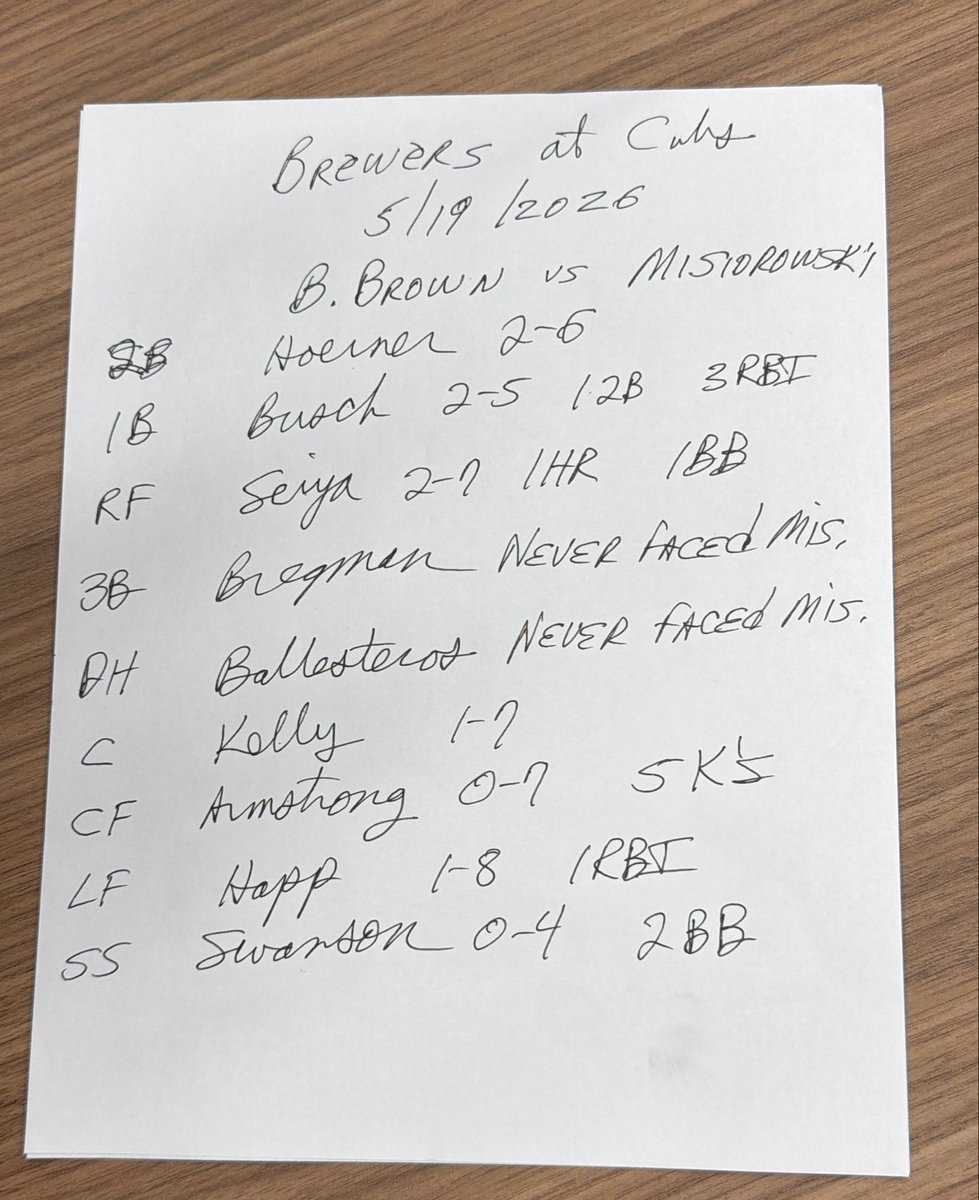 BREWERS at Cubs
5/19/2026
B. BROWN vs MISIOROWSKI
2B Hoerner 2-6
1B Busch 2-5 1 2B 3 RBI
RF Seiya 2-7 1 HR 1 BB
3B Bregman NEVER FACED MIS.
DH Ballesteros NEVER FACED MIS.
C Kelly 1-7
CF Armstrong 0-7 5 K's
LF Happ 1-8 1 RBI
SS Swanson 0-4 2 BB